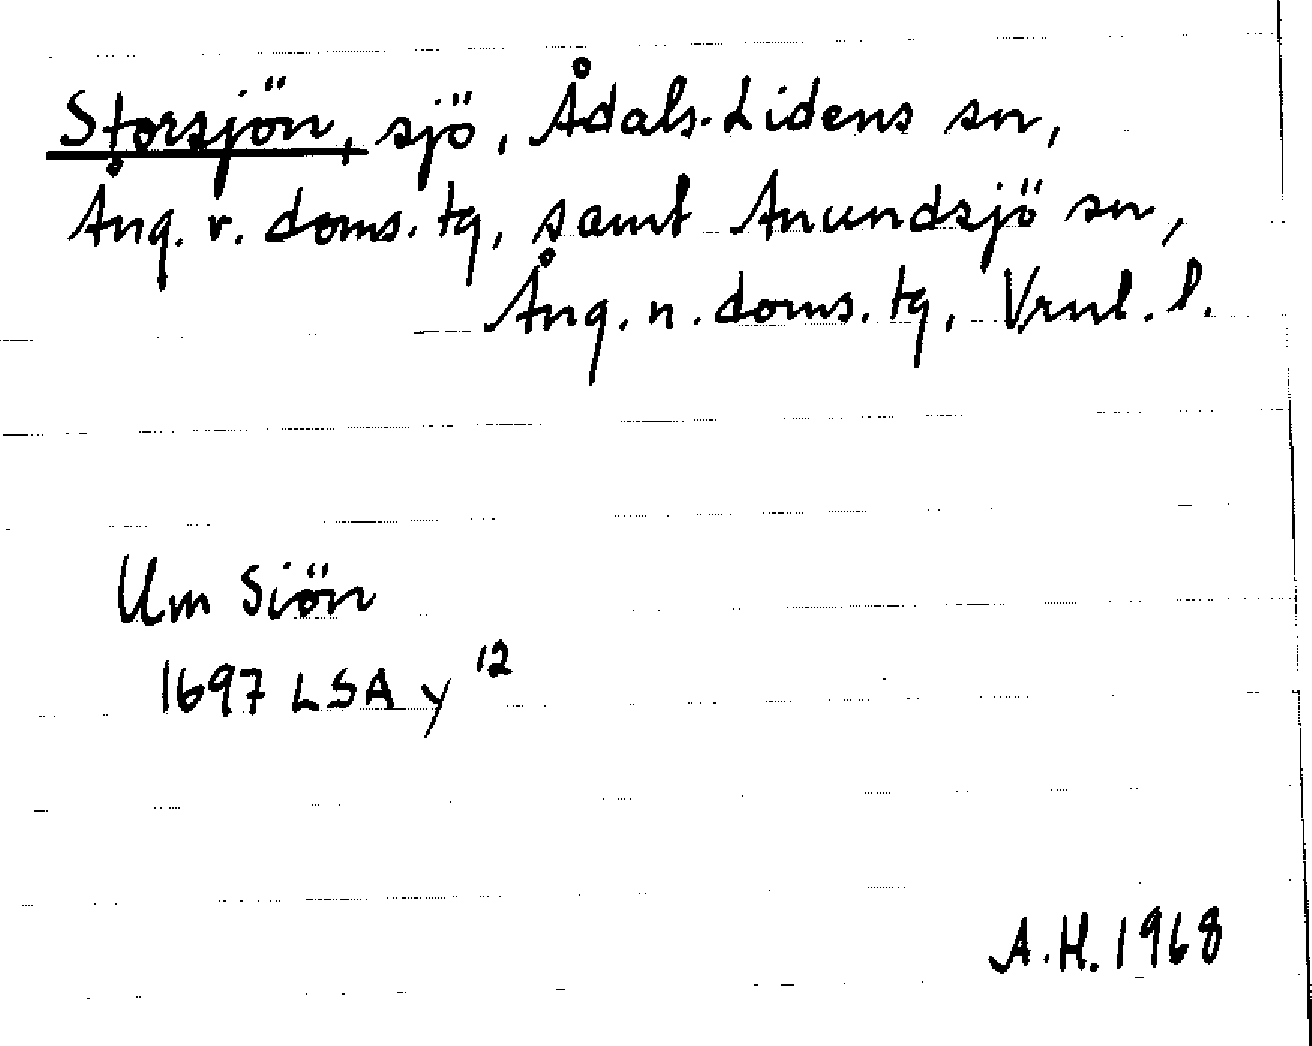 Storsjön, sjö, Ådals-Lidens sn,
Ång. v. doms. tg, samt Anundsjö sn,
Ång. n. doms. tg, Vrnl. l.
Um Siön
1697 LSA y 12
A.H. 1968